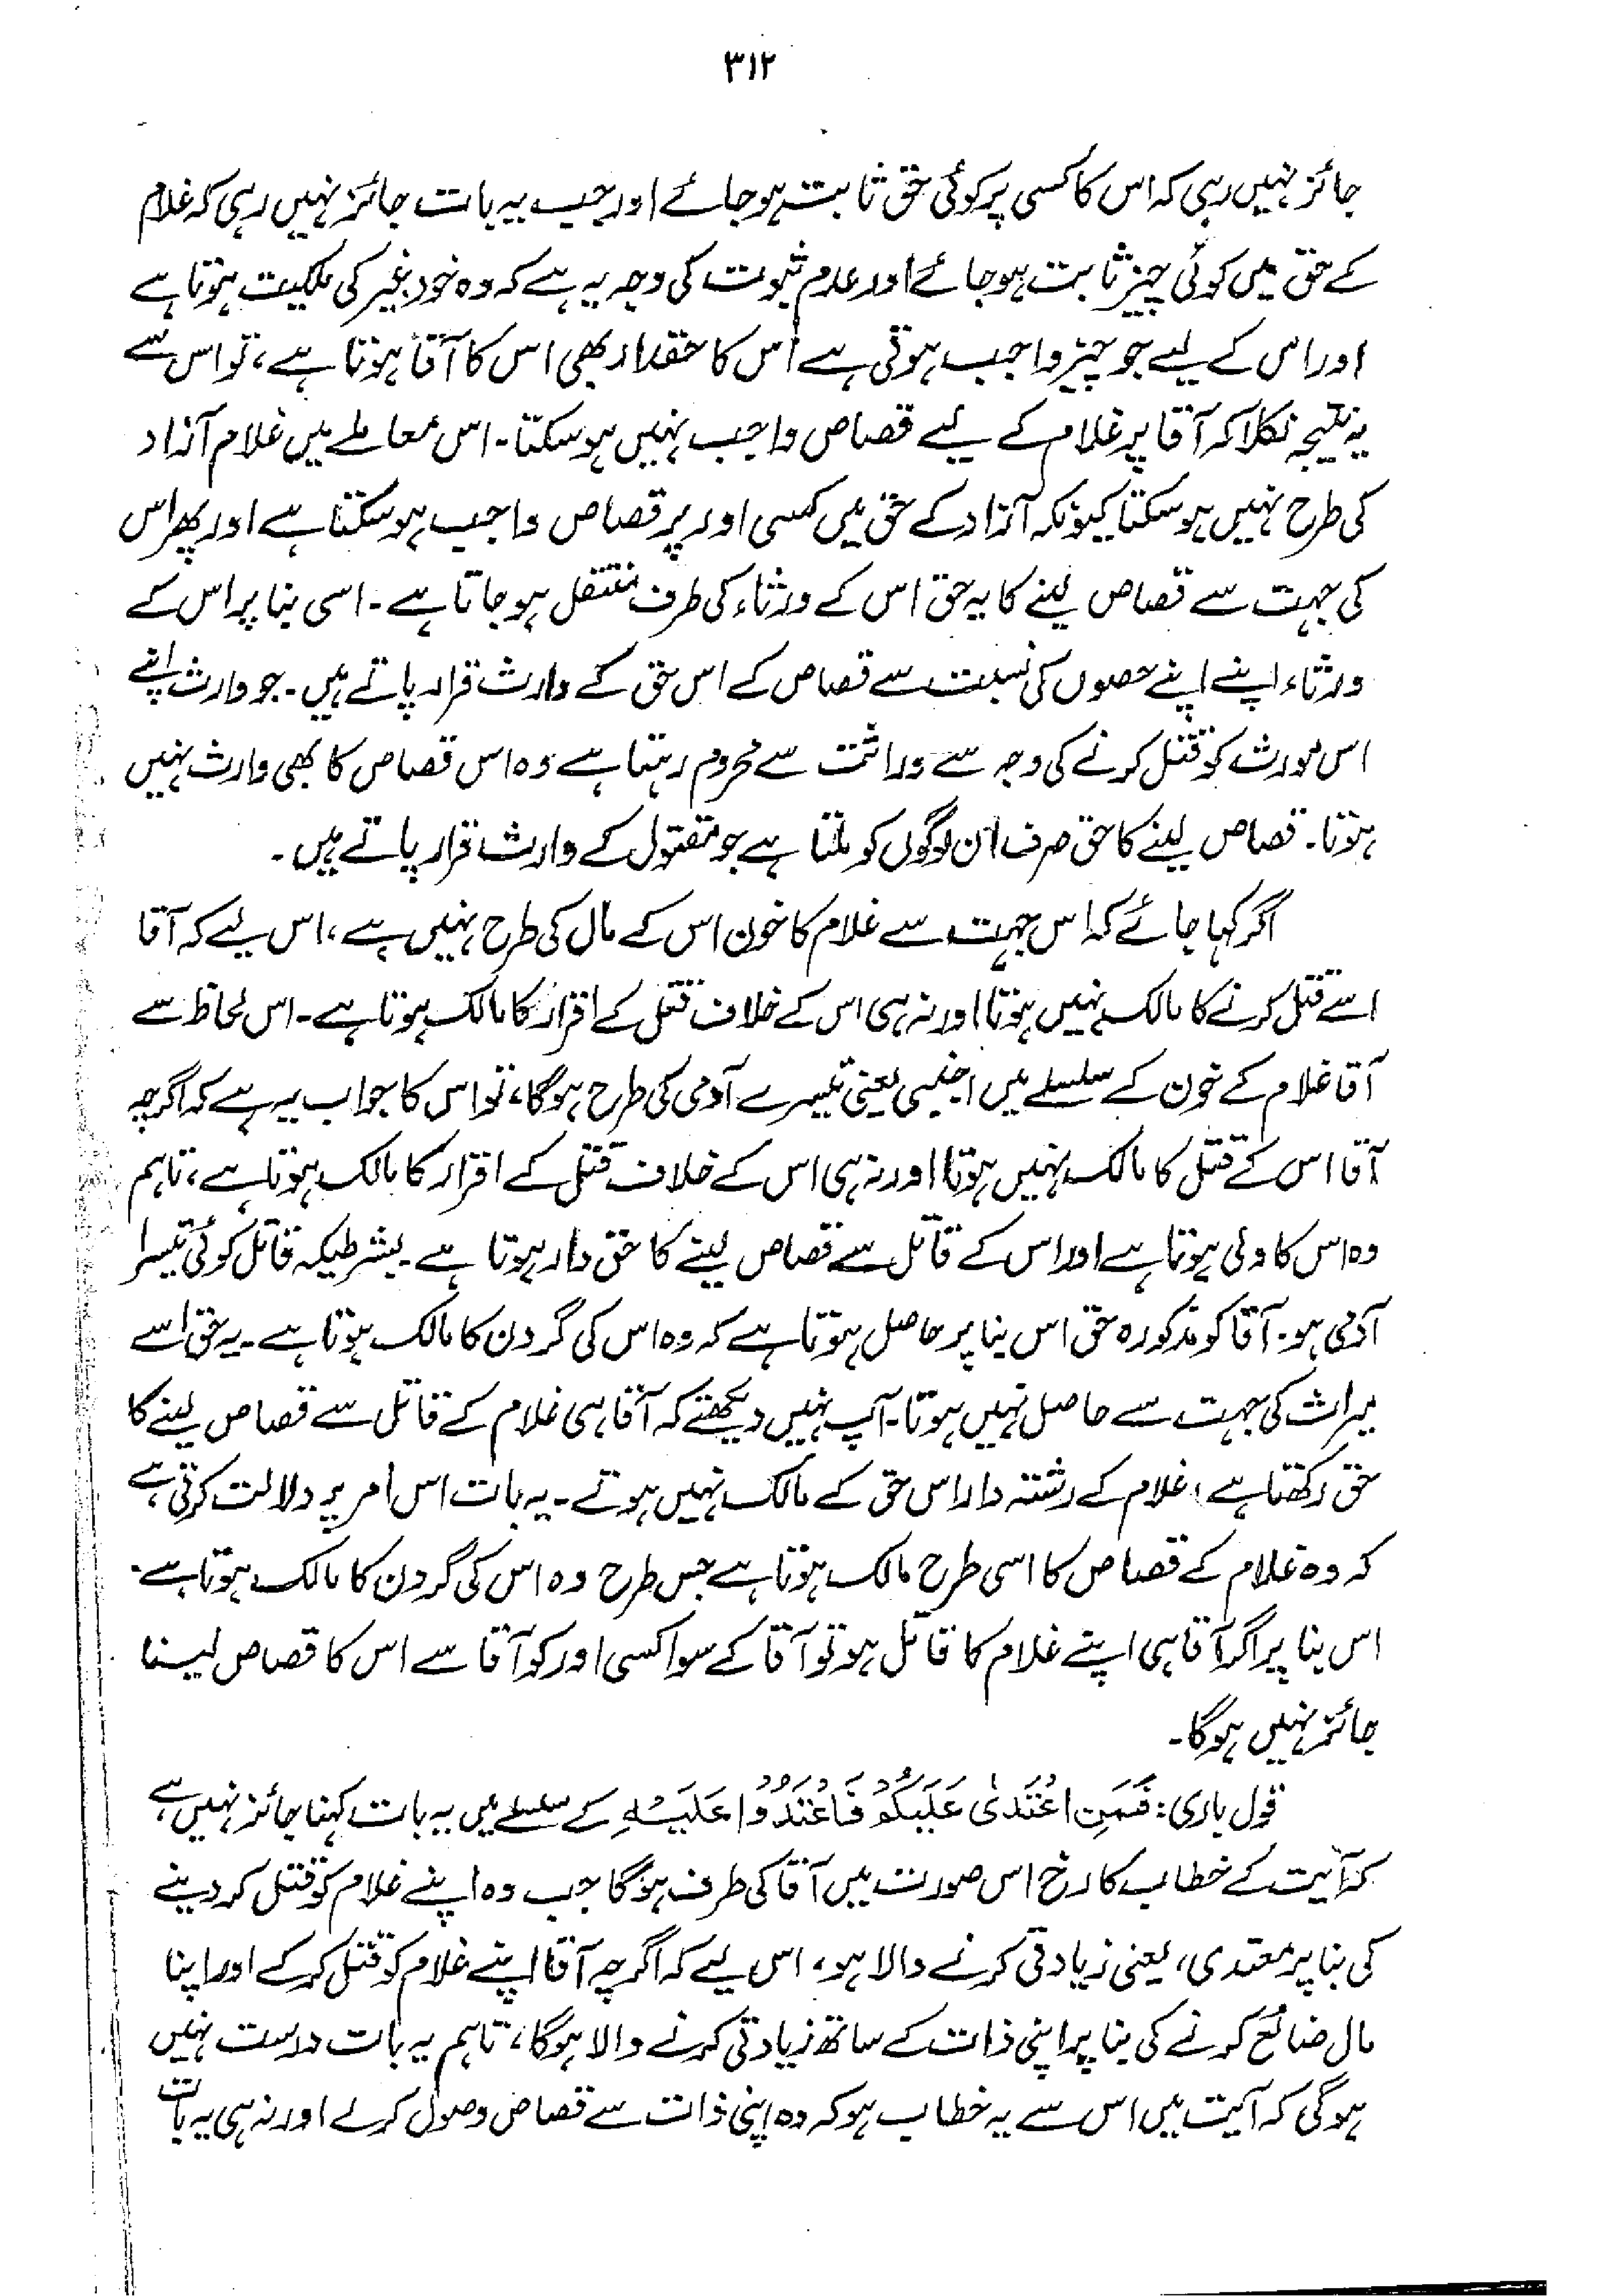 ۳۱۲
جائز نہیں رہی کہ اس کا کسی پر کوئی حق ثابت ہو جائے اور جب یہ بات جائز نہیں رہی کہ غلام
کے حق میں کوئی چیز ثابت ہو جائے اور عدم ثبوت کی وجہ یہ ہے کہ وہ خود غیر کی ملکیت ہوتا ہے
اور اس کے لیے جو چیز واجب ہوتی ہے اس کا حقدار بھی اس کا آقا ہوتا ہے، تو اس سے
یہ نتیجہ نکلا کہ آقا پر غلام کے لیے قصاص واجب نہیں ہو سکتا۔ اس معاملے میں غلام آزاد
کی طرح نہیں ہو سکتا کیونکہ آزاد کے حق میں کسی اور پر قصاص واجب ہو سکتا ہے اور پھر اس
کی جہت سے قصاص لینے کا یہ حق اس کے ورثاء کی طرف منتقل ہو جاتا ہے۔ اسی بنا پر اس کے
ورثاء اپنے اپنے حصوں کی نسبت سے قصاص کے اس حق کے وارث قرار پاتے ہیں۔ جو وارث اپنے
اس مورث کو قتل کرنے کی وجہ سے وراثت سے محروم رہتا ہے وہ اس قصاص کا بھی وارث نہیں
ہوتا۔ قصاص لینے کا حق صرف ان لوگوں کو ملتا ہے جو مقتول کے وارث قرار پاتے ہیں۔
اگر کہا جائے کہ اس جہت سے غلام کا خون اس کے مال کی طرح نہیں ہے، اس لیے کہ آقا
اسے قتل کرنے کا مالک نہیں ہوتا اور نہ ہی اس کے خلاف قتل کے اقرار کا مالک ہوتا ہے۔ اس لحاظ سے
آقا غلام کے خون کے سلسلے میں اجنبی یعنی تیسرے آدمی کی طرح ہوگا، تو اس کا جواب یہ ہے کہ اگرچہ
آقا اس کے قتل کا مالک نہیں ہوتا اور نہ ہی اس کے خلاف قتل کے اقرار کا مالک ہوتا ہے، تاہم
وہ اس کا ولی ہوتا ہے اور اس کے قاتل سے قصاص لینے کا حق دار ہوتا ہے۔ بشرطیکہ قاتل کوئی تیسرا
آدمی ہو۔ آقا کو مذکورہ حق اس بنا پر حاصل ہوتا ہے کہ وہ اس کی گردن کا مالک ہوتا ہے۔ یہ حق اسے
میراث کی جہت سے حاصل نہیں ہوتا۔ آپ نہیں دیکھتے کہ آقا ہی غلام کے قاتل سے قصاص لینے کا
حق رکھتا ہے، غلام کے رشتہ دار اس حق کے مالک نہیں ہوتے۔ یہ بات اس امر پر دلالت کرتی ہے
کہ وہ غلام کے قصاص کا اسی طرح مالک ہوتا ہے جس طرح وہ اس کی گردن کا مالک ہوتا ہے۔
اس بنا پر اگر آقا ہی اپنے غلام کا قاتل ہو تو آقا کے سوا کسی اور کو آقا سے اس کا قصاص لینا
جائز نہیں ہوگا۔
قول باری: فَمَنِ اعْتَدٰى عَلَيْكُمْ فَاعْتَدُوْا عَلَيْهِ کے سلسلے میں یہ بات کہنا جائز نہیں ہے
کہ آیت کے خطاب کا رخ اس صورت میں آقا کی طرف ہوگا جب وہ اپنے غلام کو قتل کر دینے
کی بنا پر معتدی، یعنی زیادتی کرنے والا ہو، اس لیے کہ اگرچہ آقا اپنے غلام کو قتل کر کے اور اپنا
مال ضائع کرنے کی بنا پر اپنی ذات کے ساتھ زیادتی کرنے والا ہوگا، تاہم یہ بات درست نہیں
ہوگی کہ آیت میں اس سے یہ خطاب ہو کہ وہ اپنی ذات سے قصاص وصول کرلے اور نہ ہی یہ بات